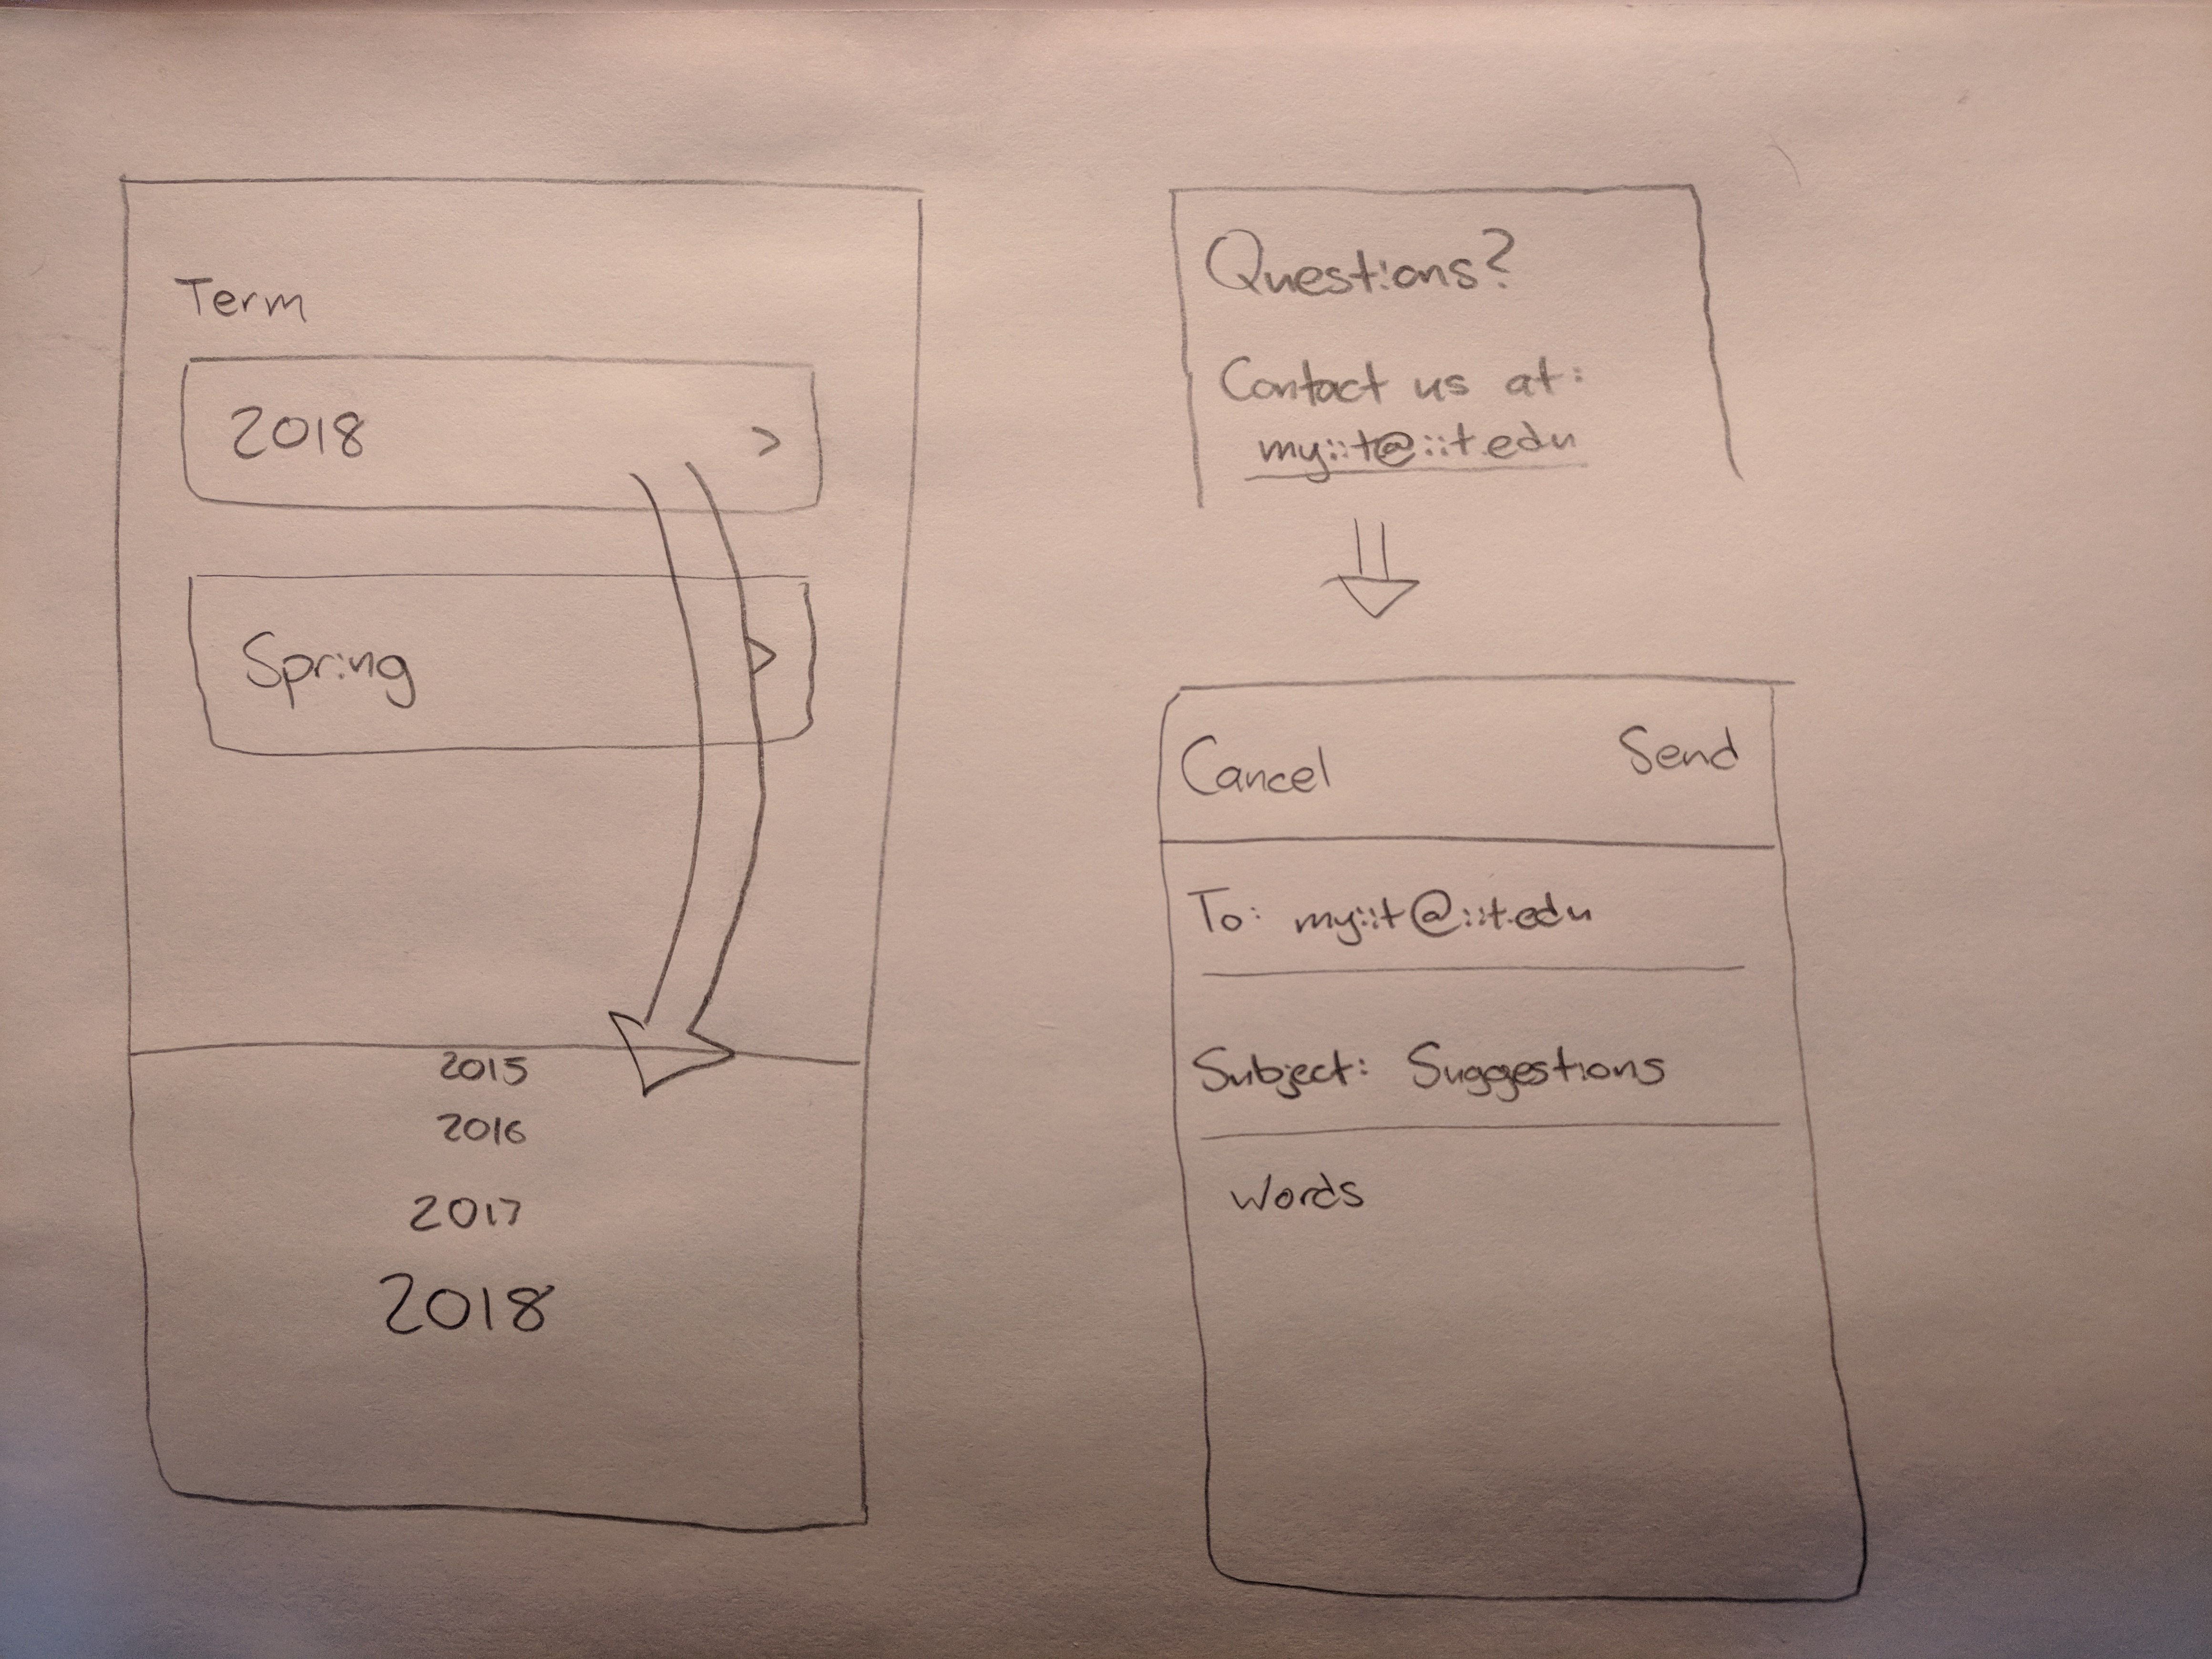 Term
2018 >
Spring >
2015
2016
2017
2018
Questions?
Contact us at:
myiit@iit.edu
Cancel Send
To: myiit@iit.edu
Subject: Suggestions
words